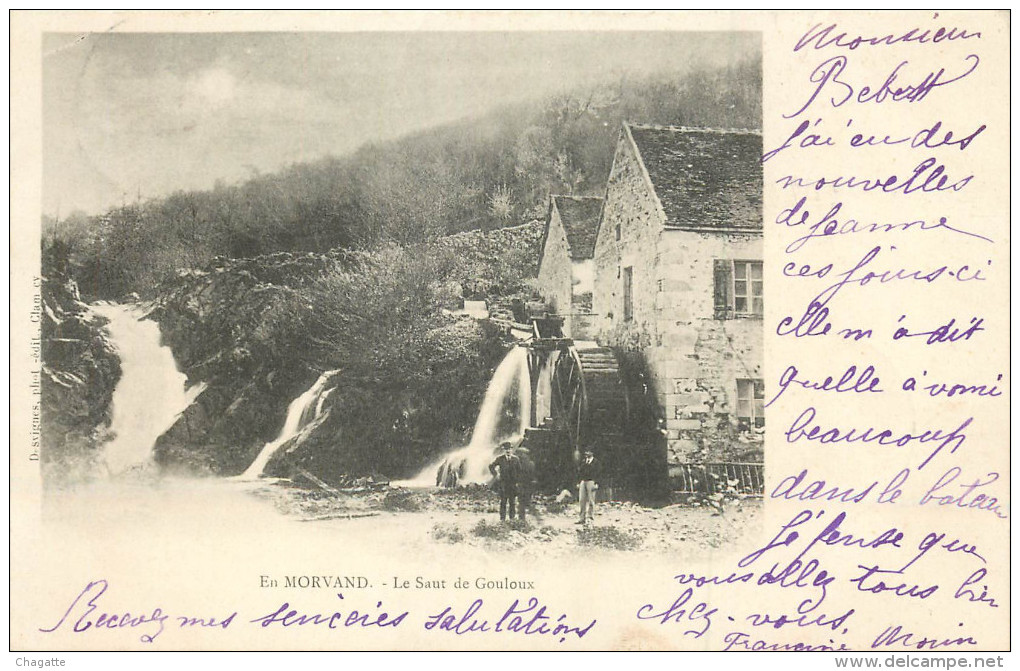 Monsieur
Bebert
J'ai eu des
nouvelles
de Jeanne
ces jours-ci
elle m'a dit
quelle à vomi
beaucoup
dans le bateau
Je pense que
vous allez tous bien
chez-vous.
Recevez mes sincères salutations
Francine Morin
En MORVAND. - Le Saut de Gouloux
D. svignes, phot -édit Clam cy
Chagatte
delcampe.net